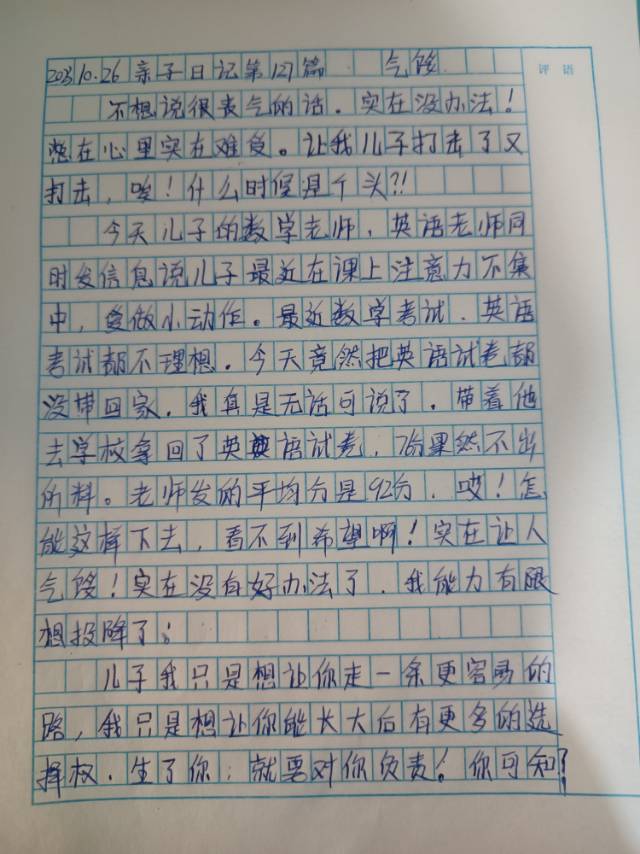 2023.10.26 亲子日记第127篇 气馁
评语
不想说很丧气的话.实在没办法!
憋在心里实在难受。让我儿子打击了又
打击,唉!什么时候是个头?!
今天儿子的数学老师,英语老师同
时发信息说儿子最近在课上注意力不集
中,爱做小动作。最近数学考试.英语
考试都不理想.今天竟然把英语试卷都
没带回家.我真是无话可说了.带着他
去学校拿回了英语试卷,76分果然不出
所料。老师发的平均分是92分.哎!怎
能这样下去,看不到希望啊!实在让人
气馁!实在没有好办法了.我能力有限
想投降了;
儿子我只是想让你走一条更容易的
路,我只是想让你能长大后有更多的选
择权.生了你;就要对你负责!你可知?